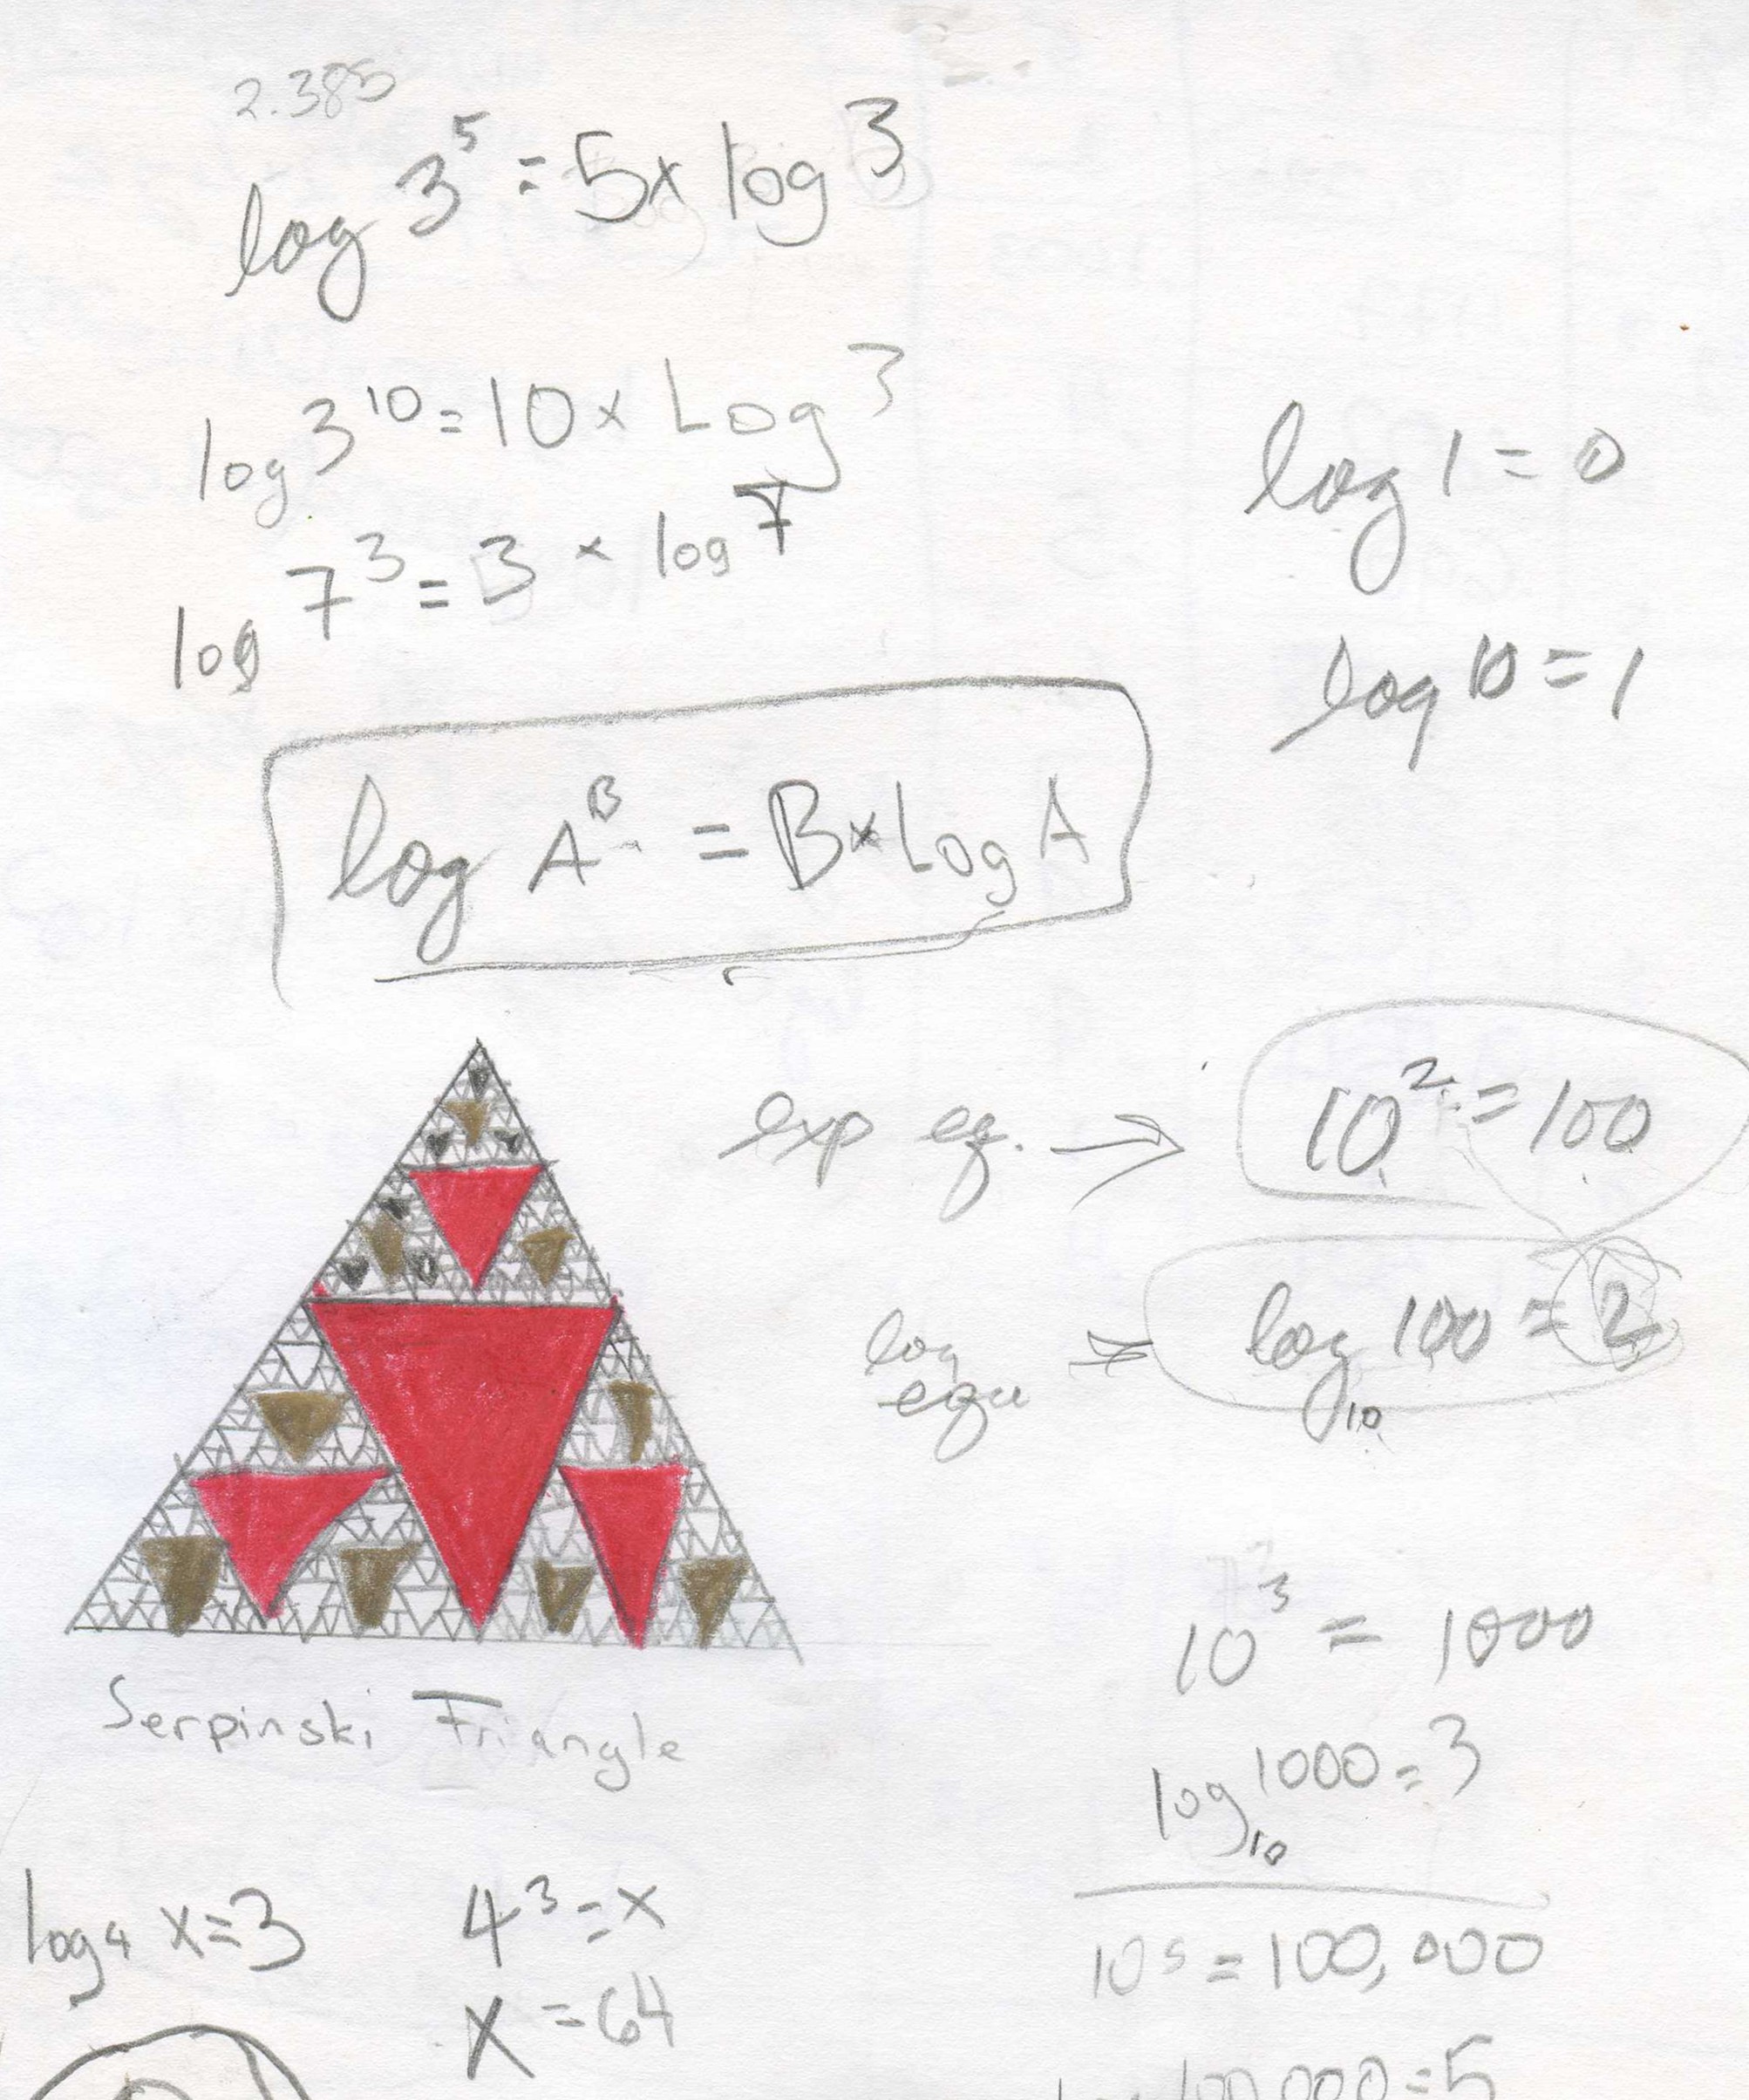 2.385
log 3⁵ = 5x log 3
log 3¹⁰ = 10 x Log 3
log 7³ = 3 x log 7
log 1 = 0
log 10 = 1
log Aᴮ = B x Log A
exp eq. → 10² = 100
log equ → log₁₀ 100 = 2
Serpinski Triangle
10³ = 1000
log₁₀ 1000 = 3
10⁵ = 100,000
log₄ x = 3
4³ = x
x = 64
100,000 = 5